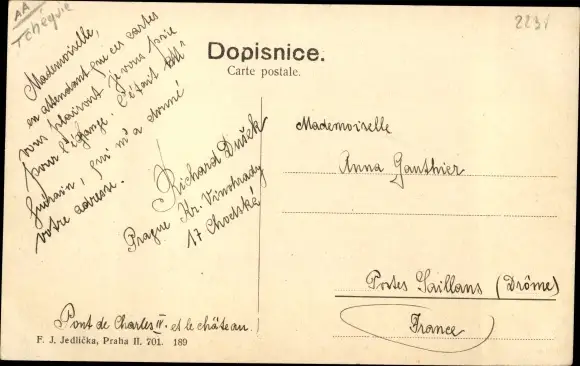 AA
Tchéquie
2231
Dopisnice.
Carte postale.
Mademoiselle,
en attendant que ces cartes
vous plairont je vous prie
pour l'échange. C'était
qui m'a donné
votre adresse.
Richard Dušek
Prague Kr. Vinohrady
17 Chodská
Pont de Charles IV. et le château.
F. J. Jedlička, Praha II. 701. 189
Mademoiselle
Anna Ganthier
Postes Saillans (Drôme)
France